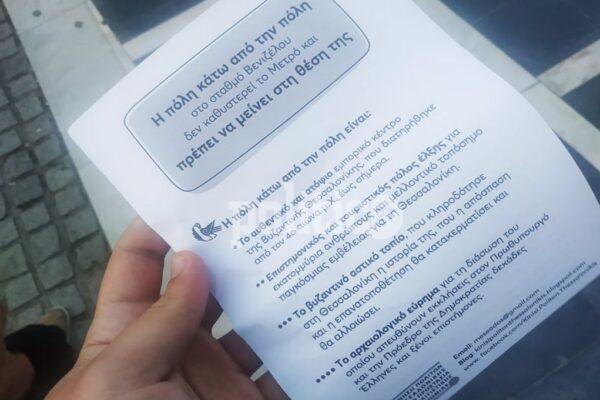 Η πόλη κάτω από την πόλη
στο σταθμό Βενιζέλου
δεν καθυστερεί το Μετρό και
πρέπει να μείνει στη θέση της
Η πόλη κάτω από την πόλη είναι:
• Το αυθεντικό και ιστορικό εμπορικό κέντρο
της Βυζαντινής Θεσσαλονίκης, που διατηρήθηκε
από τον 4ο αιώνα μ.Χ. έως σήμερα.
•• Επιστημονικός και τουριστικός πόλος έλξης για
εκατομμύρια ανθρώπους και μελλοντικό τοπόσημο
παγκόσμιας εμβέλειας για τη Θεσσαλονίκη.
••• Το βυζαντινό αστικό τοπίο, που κληροδότησε
στη Θεσσαλονίκη η ιστορία της, που η απόσπαση
και η επανατοποθέτηση θα κατακερματίσει και
θα αλλοιώσει
•••• Το αρχαιολογικό εύρημα για τη διάσωση του
οποίου απευθύνουν εκκλήσεις στον Πρωθυπουργό
και την Πρόεδρο της Δημοκρατίας δεκάδες
Έλληνες και ξένοι επιστήμονες.
Email:
Blog:
www.facebook.com/Kinisi.Politon.Thessalonikis